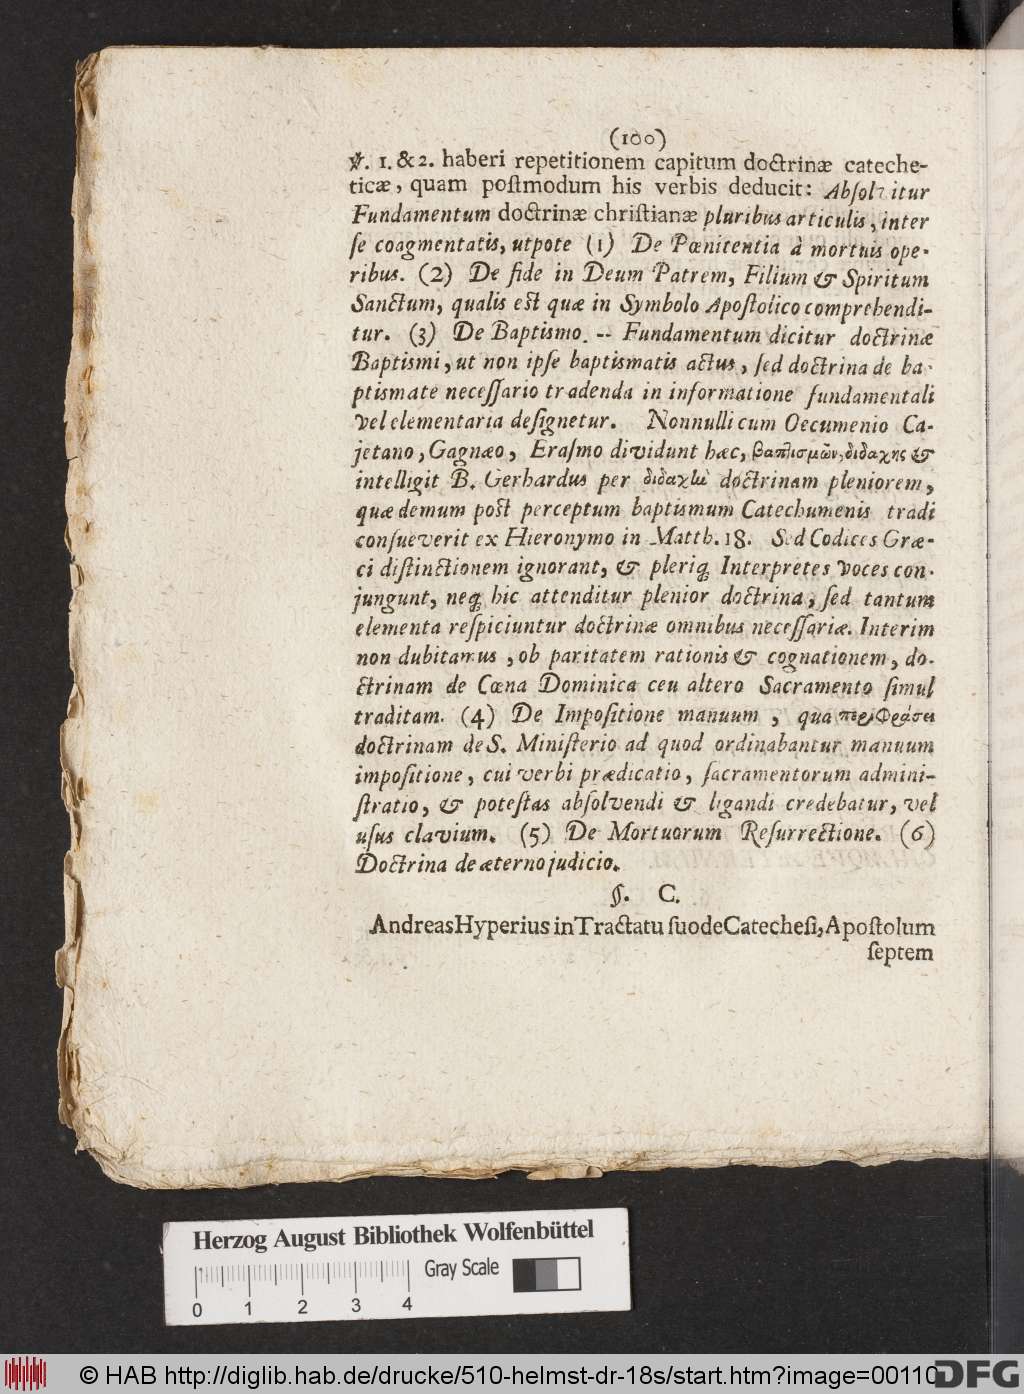 (100)
℣. 1. & 2. haberi repetitionem capitum doctrinæ cateche-
ticæ, quam poſtmodum his verbis deducit: Abſolvitur
Fundamentum doctrinæ chriſtianæ pluribus articulis, inter
ſe coagmentatis, utpote (1) De Pœnitentia à mortuis ope-
ribus. (2) De fide in Deum Patrem, Filium & Spiritum
Sanctum, qualis est quæ in Symbolo Apoſtolico comprehendi-
tur. (3) De Baptismo. -- Fundamentum dicitur doctrinæ
Baptismi, ut non ipſe baptismatis actus, ſed doctrina de ba-
ptismate neceſſario tradenda in informatione fundamentali
vel elementaria deſignetur. Nonnulli cum Oecumenio Ca-
jetano, Gagnæo, Eraſmo dividunt hæc, βαπτισμῶν, διδαχης &
intelligit B. Gerhardus per διδαχὼ doctrinam pleniorem,
quæ demum post perceptum baptismum Catechumenis tradi
conſueverit ex Hieronymo in Matth. 18. Sed Codices Græ-
ci diſtinctionem ignorant, & pleriq; Interpretes voces con-
jungunt, neq; hic attenditur plenior doctrina, ſed tantum
elementa reſpiciuntur doctrinæ omnibus neceſſariæ. Interim
non dubitamus, ob paritatem rationis & cognationem, do-
ctrinam de Cœna Dominica ceu altero Sacramento ſimul
traditam. (4) De Impoſitione manuum, qua περιφράσει
doctrinam de S. Miniſterio ad quod ordinabantur manuum
impoſitione, cui verbi prædicatio, ſacramentorum admini-
ſtratio, & poteſtas abſolvendi & ligandi credebatur, vel
uſus clavium. (5) De Mortuorum Reſurrectione. (6)
Doctrina de æterno judicio.
§. C.
Andreas Hyperius in Tractatu ſuo de Catecheſi, Apoſtolum
ſeptem
Herzog August Bibliothek Wolfenbüttel
Gray Scale
0 1 2 3 4
© HAB http://diglib.hab.de/drucke/510-helmst-dr-18s/start.htm?image=00110
DFG